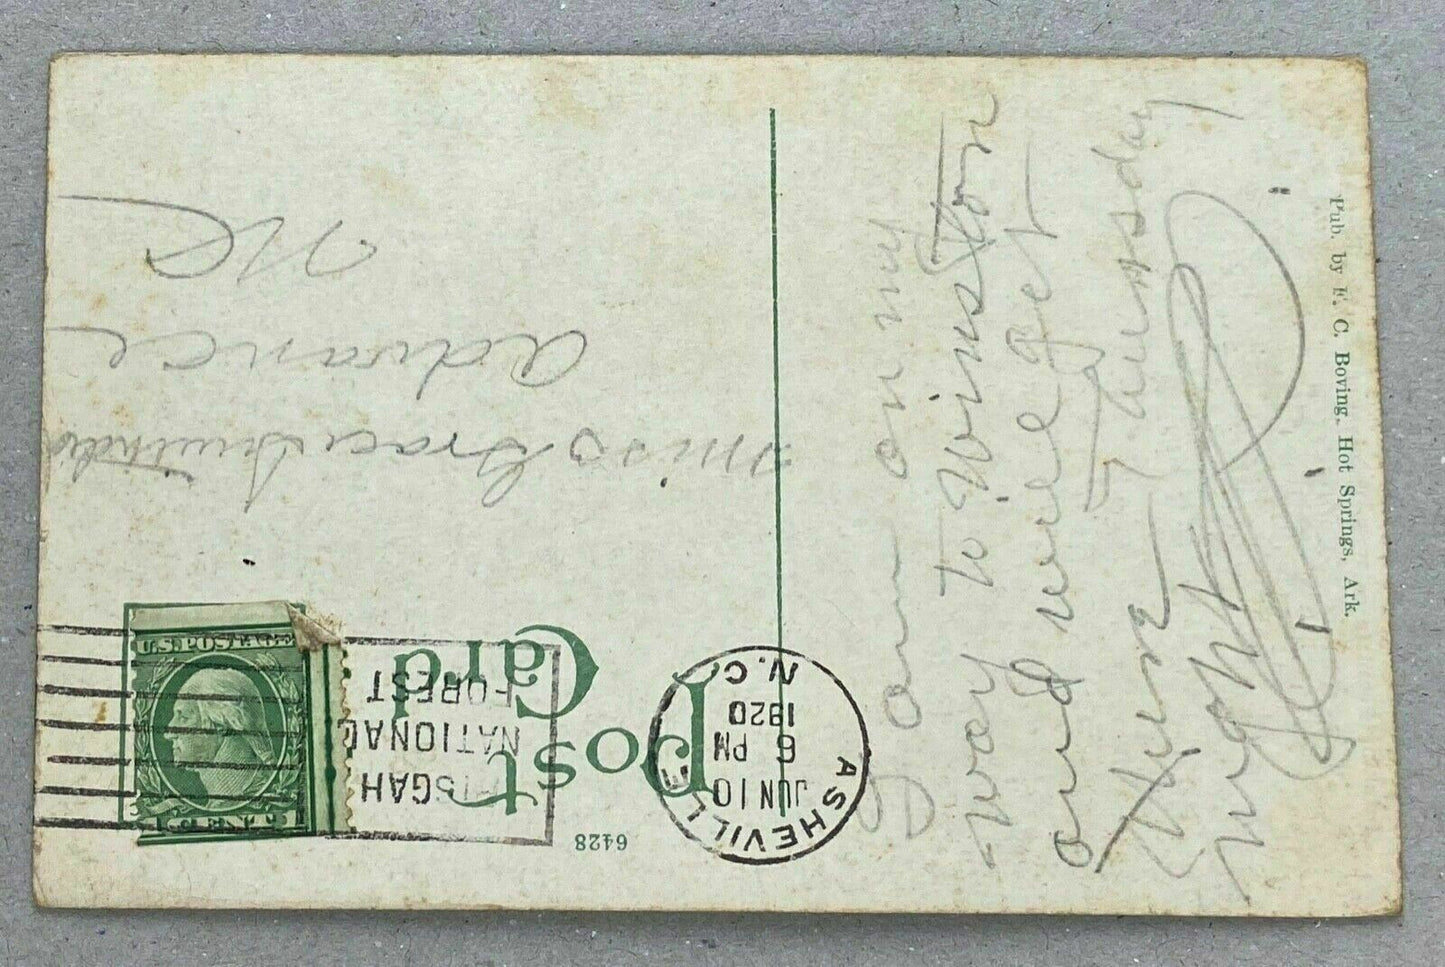 Post
Card
6428
ASHEVILLE
JUN 10
6 PM
1920
N.C.
PISGAH
NATIONAL
FOREST
U.S. POSTAGE
1 CENT 1
Miss Grace
Advance
NC
I am on my
way to Winston
and will get
Thursday
night
Pub. by F. C. Boving, Hot Springs, Ark.